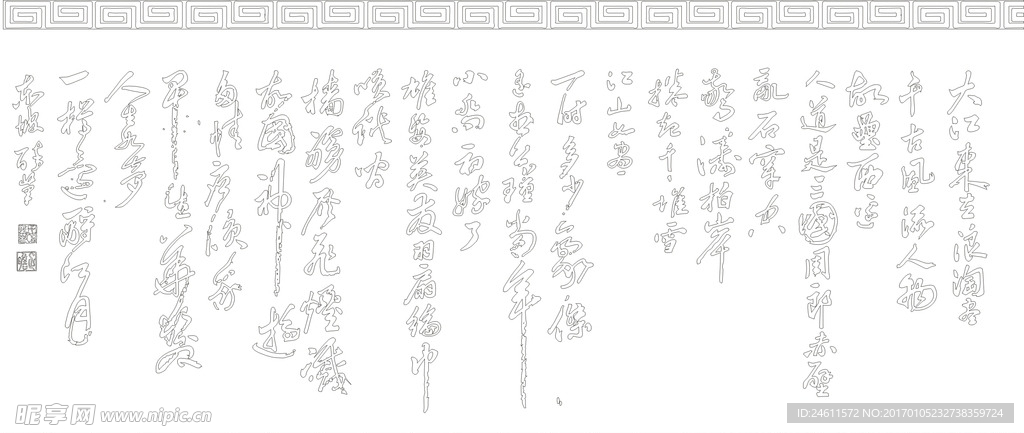 大江東去浪淘盡
千古風流人物
故壘西邊
人道是三國周郎赤壁
亂石穿空
驚濤拍岸
捲起千堆雪
江山如畫
一時多少豪傑
公瑾當年
小喬初嫁了
雄姿英發羽扇綸巾
談笑間
檣櫓灰飛煙滅
故國神遊
多情應笑我
早生華髮
人生如夢
一樽還酹江月
昵享网 www.nipic.cn
ID:24611572 NO:20170105232738359724